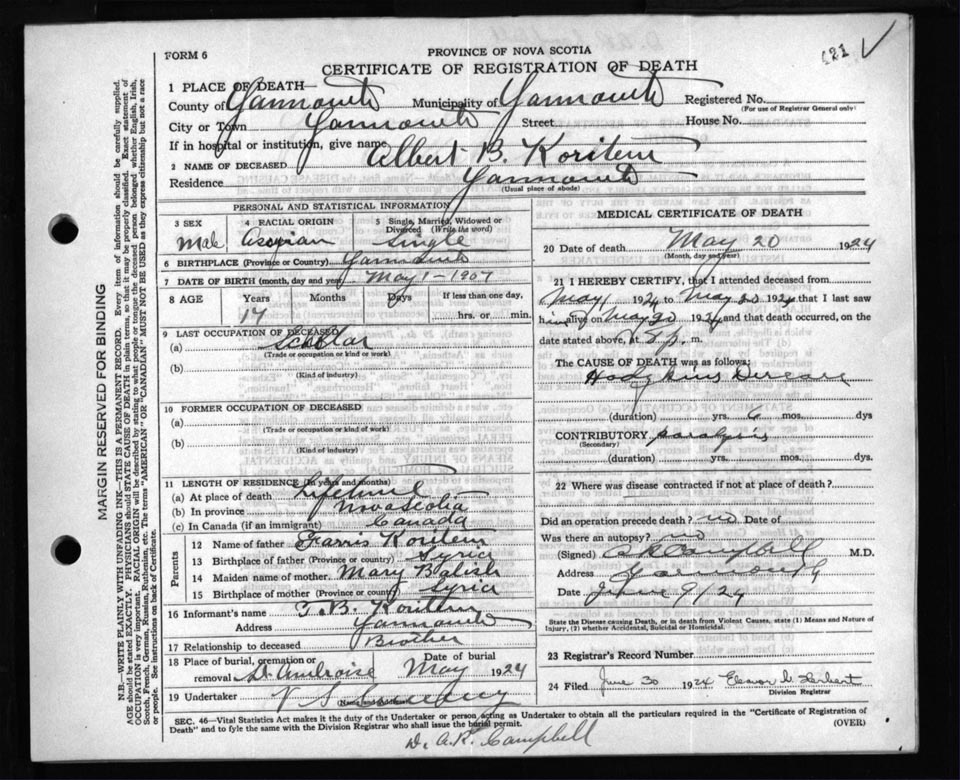 FORM 6
PROVINCE OF NOVA SCOTIA
(21
CERTIFICATE OF REGISTRATION OF DEATH
1 PLACE OF DEATH—
County of Yarmouth Municipality of Yarmouth Registered No.
(For use of Registrar General only)
City or Town Yarmouth Street House No.
If in hospital or institution, give name
2 NAME OF DECEASED Albert B. Koritem
Residence Yarmouth
(Usual place of abode)
PERSONAL AND STATISTICAL INFORMATION
3 SEX 4 RACIAL ORIGIN Single, Married, Widowed or Divorced (Write the word)
Male Single
6 BIRTHPLACE (Province or Country) Yarmouth
7 DATE OF BIRTH (month, day and year) May 1 - 1907
8 AGE Years Months Days If less than one day,
17 hrs. or min.
9 LAST OCCUPATION OF DECEASED
(a) Scholar
(Trade or occupation or kind or work)
(b)
(Kind of industry)
10 FORMER OCCUPATION OF DECEASED
(a)
(Trade or occupation or kind of work)
(b)
(Kind of industry)
11 LENGTH OF RESIDENCE (In years and months)
(a) At place of death Lifetime
(b) In province Nova Scotia
(c) In Canada (if an immigrant) Canada
Parents
12 Name of father Farris Koritem
13 Birthplace of father (Province or country) Syria
14 Maiden name of mother Mary Balish
15 Birthplace of mother (Province or country) Syria
16 Informant's name T. B. Koritem
Address Yarmouth
17 Relationship to deceased Brother
18 Place of burial, cremation or removal St. Ambroise Date of burial May 1924
19 Undertaker V S Sweeny
(Name and Address)
MEDICAL CERTIFICATE OF DEATH
20 Date of death May 20 1924
(Month, day and year)
21 I HEREBY CERTIFY, that I attended deceased from
May 1 1924 to May 20 1924 that I last saw
him alive on May 20 1924 and that death occurred, on the
date stated above, at p. m.
The CAUSE OF DEATH was as follows:
Hodgkins Disease
(duration) yrs. 6 mos. dys
CONTRIBUTORY paralysis
(Secondary)
(duration) yrs. mos. dys.
22 Where was disease contracted if not at place of death?
Did an operation precede death? no Date of
Was there an autopsy? no
(Signed) A R Campbell M.D.
Address Yarmouth
Date June 9/24
State the Disease causing Death, or in death from Violent Causes, state (1) Means and Nature of
Injury, (2) whether Accidental, Suicidal or Homicidal.
23 Registrar's Record Number
24 Filed June 30 1924 Eleanor Herbert
Division Registrar
SEC. 46—Vital Statistics Act makes it the duty of the Undertaker or person acting as Undertaker to obtain all the particulars required in the "Certificate of Registration of
Death" and to fyle the same with the Division Registrar who shall issue the burial permit. (OVER)
Dr. A. R. Campbell
MARGIN RESERVED FOR BINDING
N.B.—WRITE PLAINLY WITH UNFADING INK—THIS IS A PERMANENT RECORD. Every item of information should be carefully supplied.
AGE should be stated EXACTLY. PHYSICIANS should STATE CAUSE OF DEATH in plain terms, so that it may be properly classified. Exact statement of
OCCUPATION is very important. RACIAL ORIGIN will be described by stating to what people or tongue the deceased person belonged whether English, Irish,
Scotch, French, German, Russian, Ruthenian, etc. The terms "AMERICAN" OR "CANADIAN" MUST NOT BE USED as they express citizenship but not a race
or people. See instructions on back of Certificate.